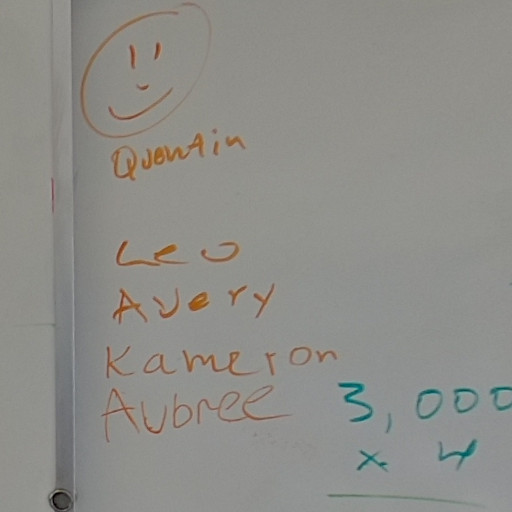 Quentin
Leo
Avery
Kameron
Aubree
3,000
x 4